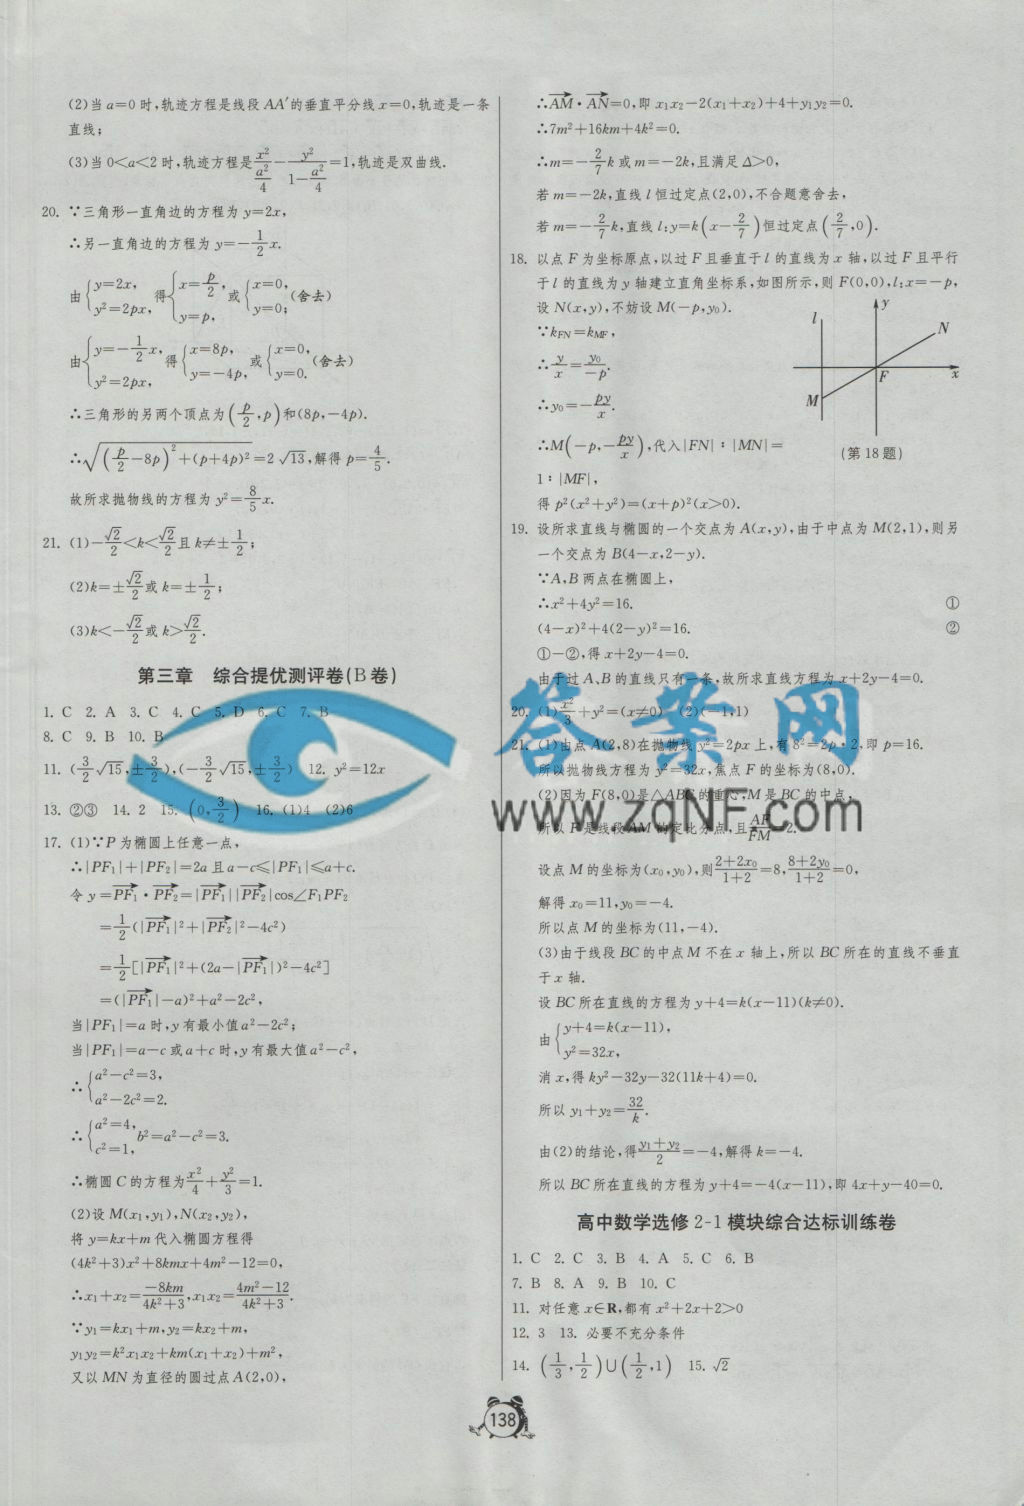 (2)当 a=0 时,轨迹方程是线段 AA′的垂直平分线 x=0,轨迹是一条
直线;
(3)当 0<a<2 时,轨迹方程是 \frac{x^2}{\frac{a^2}{4}}-\frac{y^2}{1-\frac{a^2}{4}}=1,轨迹是双曲线.
20. ∵三角形一直角边的方程为 y=2x,
∴另一直角边的方程为 y=-\frac{1}{2}x.
由{y=2x, y²=2px, 得{x=\frac{p}{2}, y=p, 或{x=0, y=0;(舍去)
由{y=-\frac{1}{2}x, y²=2px, 得{x=8p, y=-4p, 或{x=0, y=0.(舍去)
∴三角形的另两个顶点为(\frac{p}{2},p)和(8p,-4p).
∴\sqrt{(\frac{p}{2}-8p)²+(p+4p)²}=2\sqrt{13},解得 p=\frac{4}{5}.
故所求抛物线的方程为 y²=\frac{8}{5}x.
21. (1)-\frac{\sqrt{2}}{2}<k<\frac{\sqrt{2}}{2}且 k≠±\frac{1}{2};
(2)k=±\frac{\sqrt{2}}{2}或 k=±\frac{1}{2};
(3)k<-\frac{\sqrt{2}}{2}或 k>\frac{\sqrt{2}}{2}.
第三章 综合提优测评卷(B 卷)
1. C 2. A 3. C 4. C 5. D 6. C 7. B
8. C 9. B 10. B
11. (\frac{3}{2}\sqrt{15},±\frac{3}{2}),(-\frac{3}{2}\sqrt{15},±\frac{3}{2}) 12. y²=12x
13. ②③ 14. 2 15. (0,\frac{3}{2}) 16. (1)4 (2)6
17. (1)∵P 为椭圆上任意一点,
∴|PF₁|+|PF₂|=2a 且 a-c≤|PF₁|≤a+c.
令 y=\overrightarrow{PF₁}·\overrightarrow{PF₂}=|\overrightarrow{PF₁}||\overrightarrow{PF₂}|cos∠F₁PF₂
=\frac{1}{2}(|\overrightarrow{PF₁}|²+|\overrightarrow{PF₂}|²-4c²)
=\frac{1}{2}[|\overrightarrow{PF₁}|²+(2a-|\overrightarrow{PF₁}|)²-4c²]
=(|\overrightarrow{PF₁}|-a)²+a²-2c²,
当|PF₁|=a 时,y 有最小值 a²-2c²;
当|PF₁|=a-c 或 a+c 时,y 有最大值 a²-c²,
∴{a²-c²=3, a²-2c²=2.
∴{a²=4, c²=1, b²=a²-c²=3.
∴椭圆 C 的方程为\frac{x²}{4}+\frac{y²}{3}=1.
(2)设 M(x₁,y₁),N(x₂,y₂),
将 y=kx+m 代入椭圆方程得
(4k²+3)x²+8kmx+4m²-12=0,
∴x₁+x₂=\frac{-8km}{4k²+3},x₁x₂=\frac{4m²-12}{4k²+3}.
∵y₁=kx₁+m,y₂=kx₂+m,
y₁y₂=k²x₁x₂+km(x₁+x₂)+m²,
又以 MN 为直径的圆过点 A(2,0),
∴\overrightarrow{AM}·\overrightarrow{AN}=0,即 x₁x₂-2(x₁+x₂)+4+y₁y₂=0.
∴7m²+16km+4k²=0.
∴m=-\frac{2}{7}k 或 m=-2k,且满足 Δ>0,
若 m=-2k,直线 l 恒过定点(2,0),不合题意舍去,
若 m=-\frac{2}{7}k,直线 l:y=k(x-\frac{2}{7})恒过定点(\frac{2}{7},0).
18. 以点 F 为坐标原点,以过 F 且垂直于 l 的直线为 x 轴,以过 F 且平行
于 l 的直线为 y 轴建立直角坐标系,如图所示,则 F(0,0),l:x=-p,
设 N(x,y),不妨设 M(-p,y₀).
∵k_{FN}=k_{MF},
∴\frac{y}{x}=\frac{y₀}{-p}.
∴y₀=-\frac{py}{x}.
∴M(-p,-\frac{py}{x}),代入|FN|∶|MN|=
1∶|MF|,
得 p²(x²+y²)=(x+p)²(x>0).
y
l
N
F
x
M
(第 18 题)
19. 设所求直线与椭圆的一个交点为 A(x,y),由于中点为 M(2,1),则另
一个交点为 B(4-x,2-y).
∵A,B 两点在椭圆上,
∴x²+4y²=16. ①
(4-x)²+4(2-y)²=16. ②
①-②,得 x+2y-4=0.
由于过 A、B 的直线只有一条,故所求直线方程为 x+2y-4=0.
20. (1)\frac{x²}{3}+y²=(x≠0) (2)(-1,1)
21. (1)由点 A(2,8)在抛物线 y²=2px 上,有 8²=2p·2,即 p=16.
所以抛物线方程为 y²=32x,焦点 F 的坐标为(8,0).
(2)因为 F(8,0)是△ABC 的重心,M 是 BC 的中点,
所以 F 是线段 AM 的定比分点,且\frac{AF}{FM}=2.
设点 M 的坐标为(x₀,y₀),则\frac{2+2x₀}{1+2}=8,\frac{8+2y₀}{1+2}=0,
解得 x₀=11,y₀=-4.
所以点 M 的坐标为(11,-4).
(3)由于线段 BC 的中点 M 不在 x 轴上,所以 BC 所在的直线不垂直
于 x 轴.
设 BC 所在直线的方程为 y+4=k(x-11)(k≠0).
由{y+4=k(x-11), y²=32x,
消 x,得 ky²-32y-32(11k+4)=0.
所以 y₁+y₂=\frac{32}{k}.
由(2)的结论,得\frac{y₁+y₂}{2}=-4,解得 k=-4.
所以 BC 所在直线的方程为 y+4=-4(x-11),即 4x+y-40=0.
高中数学选修 2-1 模块综合达标训练卷
1. C 2. C 3. B 4. A 5. C 6. B
7. B 8. A 9. B 10. C
11. 对任意 x∈R,都有 x²+2x+2>0
12. 3 13. 必要不充分条件
14. (\frac{1}{3},\frac{1}{2})∪(\frac{1}{2},1) 15. \sqrt{2}
138
答案网
www.zqNF.com